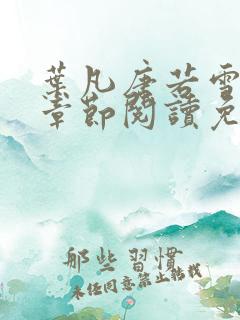 葉凡唐若雪
章節閱讀免
那些習慣
未經同意禁止轉載